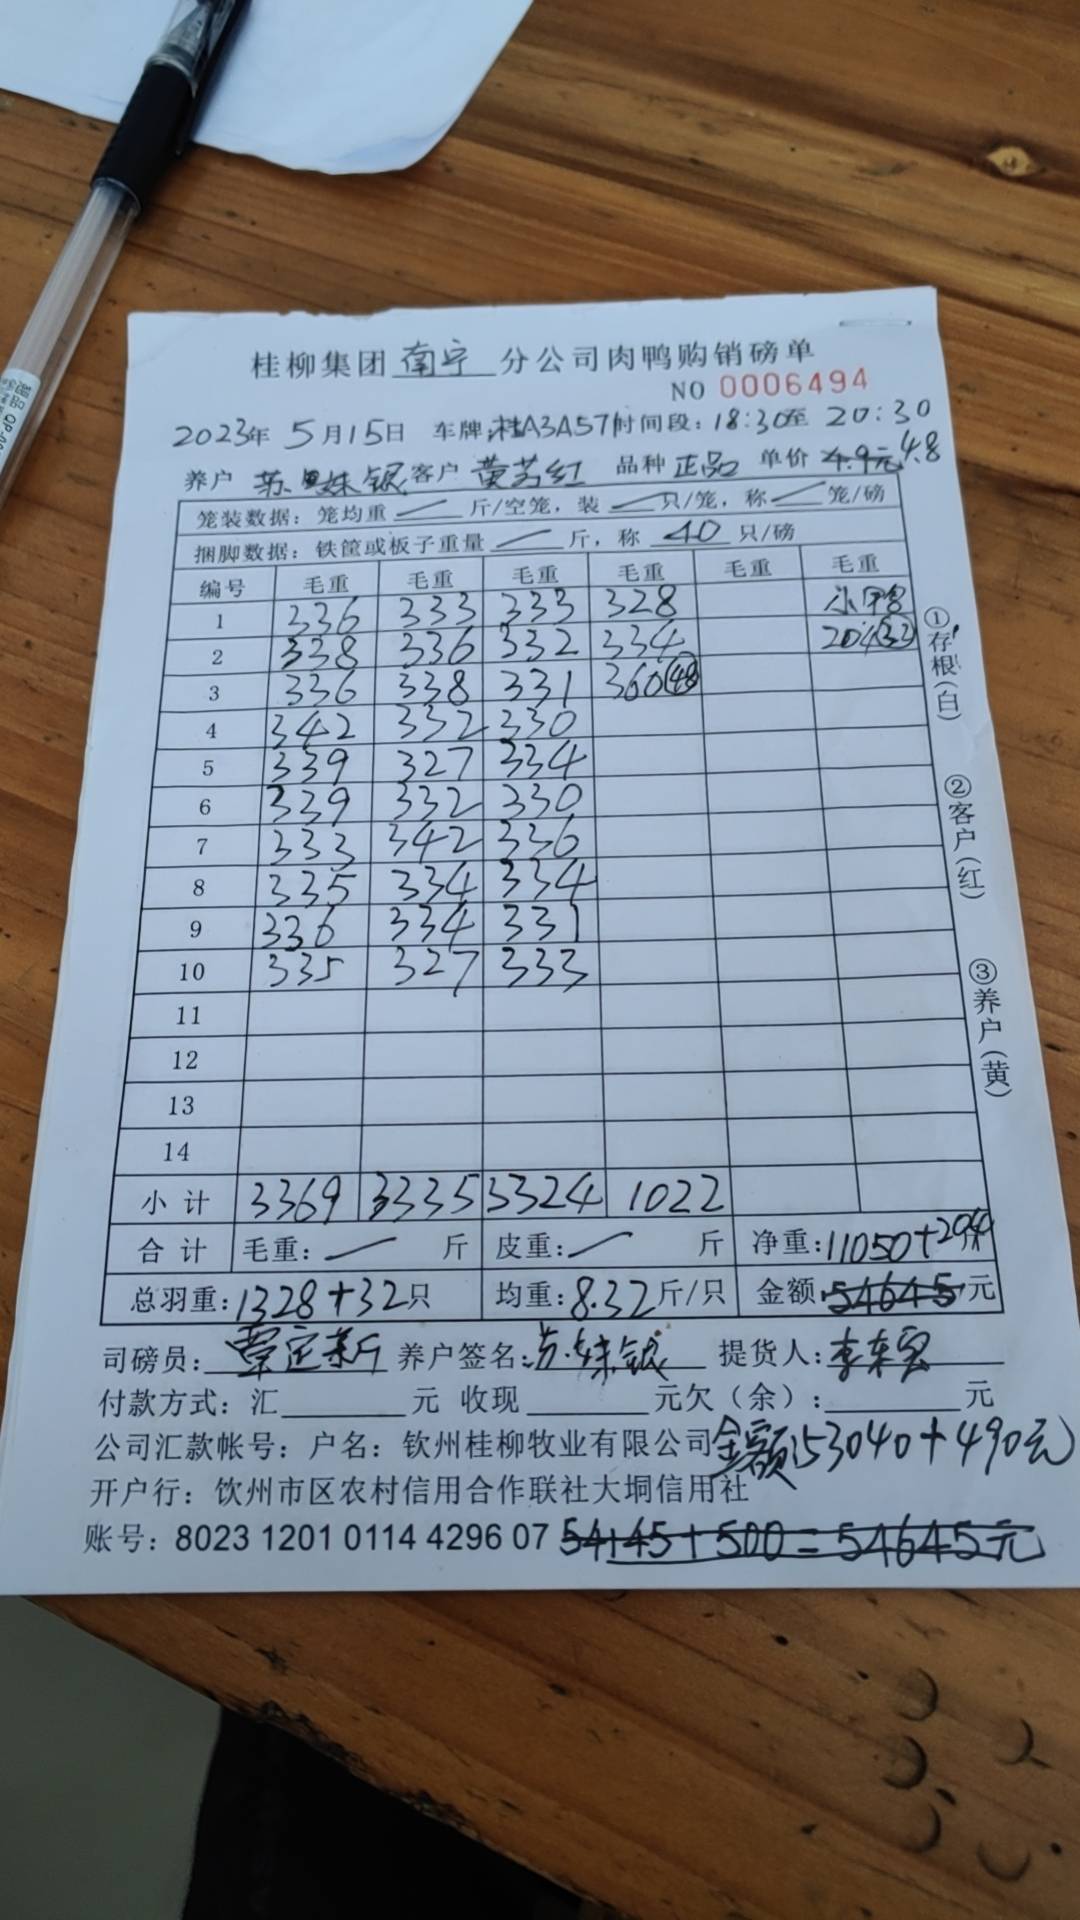 桂柳集团 南宁 分公司肉鸭购销磅单
NO 0006494
2023年 5月15日 车牌:桂A3A57 时间段:18:30至 20:30
养户 苏妹银 客户 黄芳红 品种 正品 单价 4.9元 4.8
笼装数据:笼均重 — 斤/空笼,装 — 只/笼,称 — 笼/磅
捆脚数据:铁筐或板子重量 — 斤,称 40 只/磅
编号 毛重 毛重 毛重 毛重 毛重 毛重
1 336 333 333 328 小鸭
2 338 336 332 334 204(32)
3 336 338 331 360(48)
4 342 332 330
5 339 327 334
6 339 332 330
7 333 342 336
8 335 334 334
9 336 334 331
10 335 327 333
11
12
13
14
小计 3369 3335 3324 1022
合计 毛重:— 斤 皮重:— 斤 净重:11050+204斤
总羽重:1328+32只 均重:8.32斤/只 金额:54645元
司磅员: 养户签名:苏妹银 提货人:
付款方式:汇 元 收现 元欠(余): 元
公司汇款帐号:户名:钦州桂柳牧业有限公司 金额:53040+490元
开户行:饮州市区农村信用合作联社大垌信用社
账号:8023 1201 0114 4296 07 54145+500=54645元
①存根(白)
②客户(红)
③养户(黄)